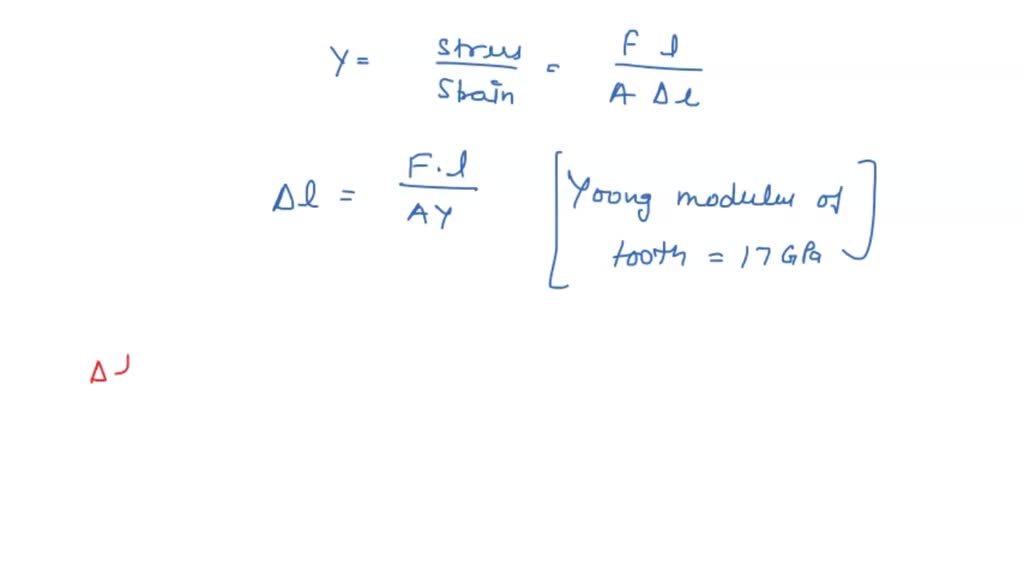 Y = stress / Strain = F l / A Δl
Δl = F.l / AY [Young modulus of
tooth = 17 GPa]
Δ